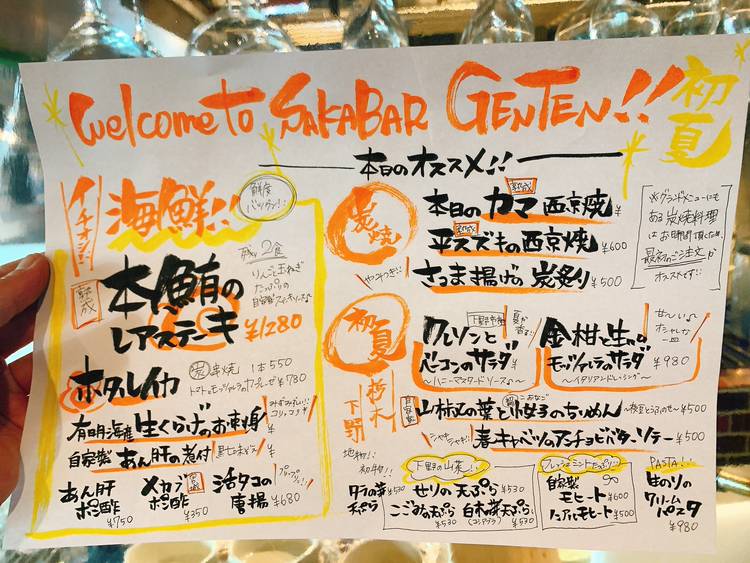 Welcome to SAKABAR GENTEN!!
初夏
本日のオススメ!!
イチオシ!!
海鮮!!
鮮度
バツグン!!
熟成
本鮪の
レアステーキ
¥1280
残り2食
りんごと玉ねぎ
たっぷりの
ホタルイカ
串焼 1本550
¥780
有明海産 生くらげのお刺身 ¥
コリコリ
自家製 あん肝の煮付 ¥
あん肝
ポン酢
¥750
メカブ
ポン酢
¥350
活タコの
唐揚
¥680
プリップリ!!
炭焼
熟成
本日のカマ西京焼 ¥
熟成
平スズキの西京焼 ¥600
さつま揚げの炭炙り ¥500
※グランドメニューにも
ある炭焼料理
はお時間頂くため
最初のご注文が
オススメです!!
初夏
クレソンと
ベーコンのサラダ
〜ハニーマスタードソース〜
金柑と生の
モッツァレラのサラダ
¥980
〜イタリアンドレッシング〜
甘〜い
オシャレな
一皿
朽木
下野
自家製
山椒の葉と小女子のちりめん
こおなご
¥500
シャキシャキ!!
春キャベツのアンチョビバターソテー ¥500
地物!!
初物!!
下野の山菜!!
タラの芽
天ぷら
¥530
せりの天ぷら ¥530
こごみの天ぷら
¥530
白木の芽天ぷら
(コシアブラ)
¥530
フレッシュミントたっぷり!!
自家製
モヒート ¥600
ノンアルモヒート ¥500
PASTA!!
生のりの
クリーム
パスタ
¥980